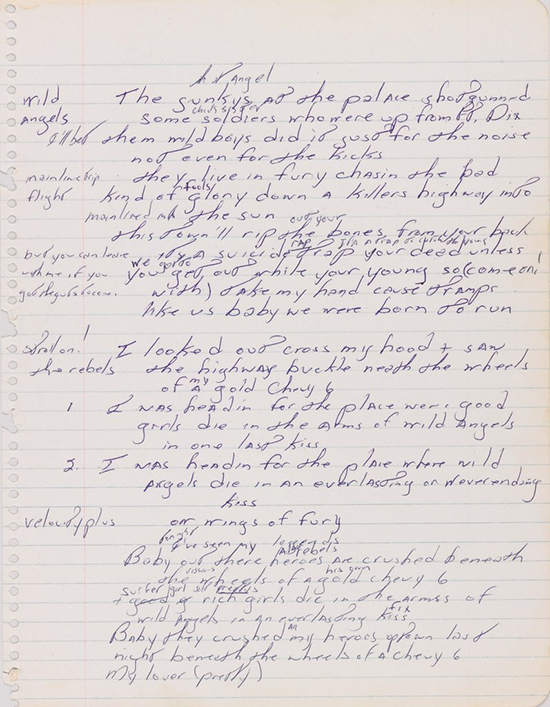 Angel
Wild The gunkys at the palace shotgunned
Angels some soldiers who were up from Ft. Dix
I'll bet them wild boys did it just for the noise
not even for the kicks
mainline trip they live in fury chasin the bad
flight kind of glory down a killers highway into
mainlined the sun out your
this town'll rip the bones from your back
but you can leave its a suicide trap your dead unless
with me if you we gotta you get out while your young so (come on!
got the guts
with) take my hand cause tramps
like us baby we were born to run
stroll on! I looked out cross my hood + saw
the rebels the highway buckle neath the wheels
of my a gold Chevy 6
1 I was headin for the place were good
girls die in the arms of wild Angels
in one last kiss
2. I was headin for the place where wild
Angels die in an everlasting or neverending
kiss
velocity plus on wings of fury
I've seen my legends
rebels
Baby out there heroes are crushed beneath
his own
the wheels of a gold chevy 6
girl
rich girls die in the armss of
fix
wild angels in an everlasting kiss
Baby they crushed all my heroes down last
night beneath the wheels of a Chevy 6
my lover (pretty)